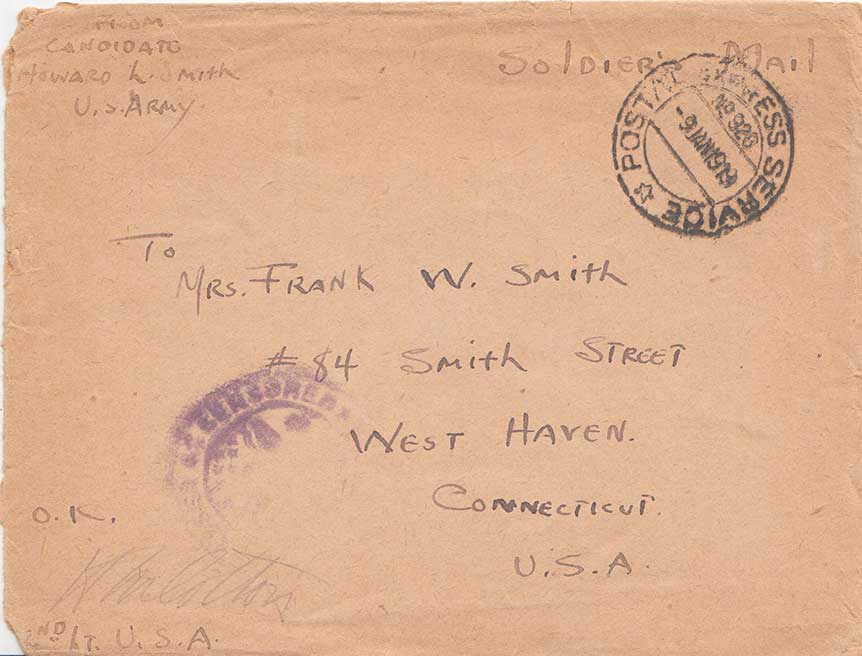 FROM
CANDIDATE
HOWARD L. SMITH
U.S. ARMY.
SOLDIER'S MAIL
POSTAL EXPRESS SERVICE
No 920
-9 JAN 1919
TO
MRS. FRANK W. SMITH
# 84 SMITH STREET
WEST HAVEN.
CONNECTICUT.
U.S.A.
CENSORED
O.K.
2ND LT. U.S.A.